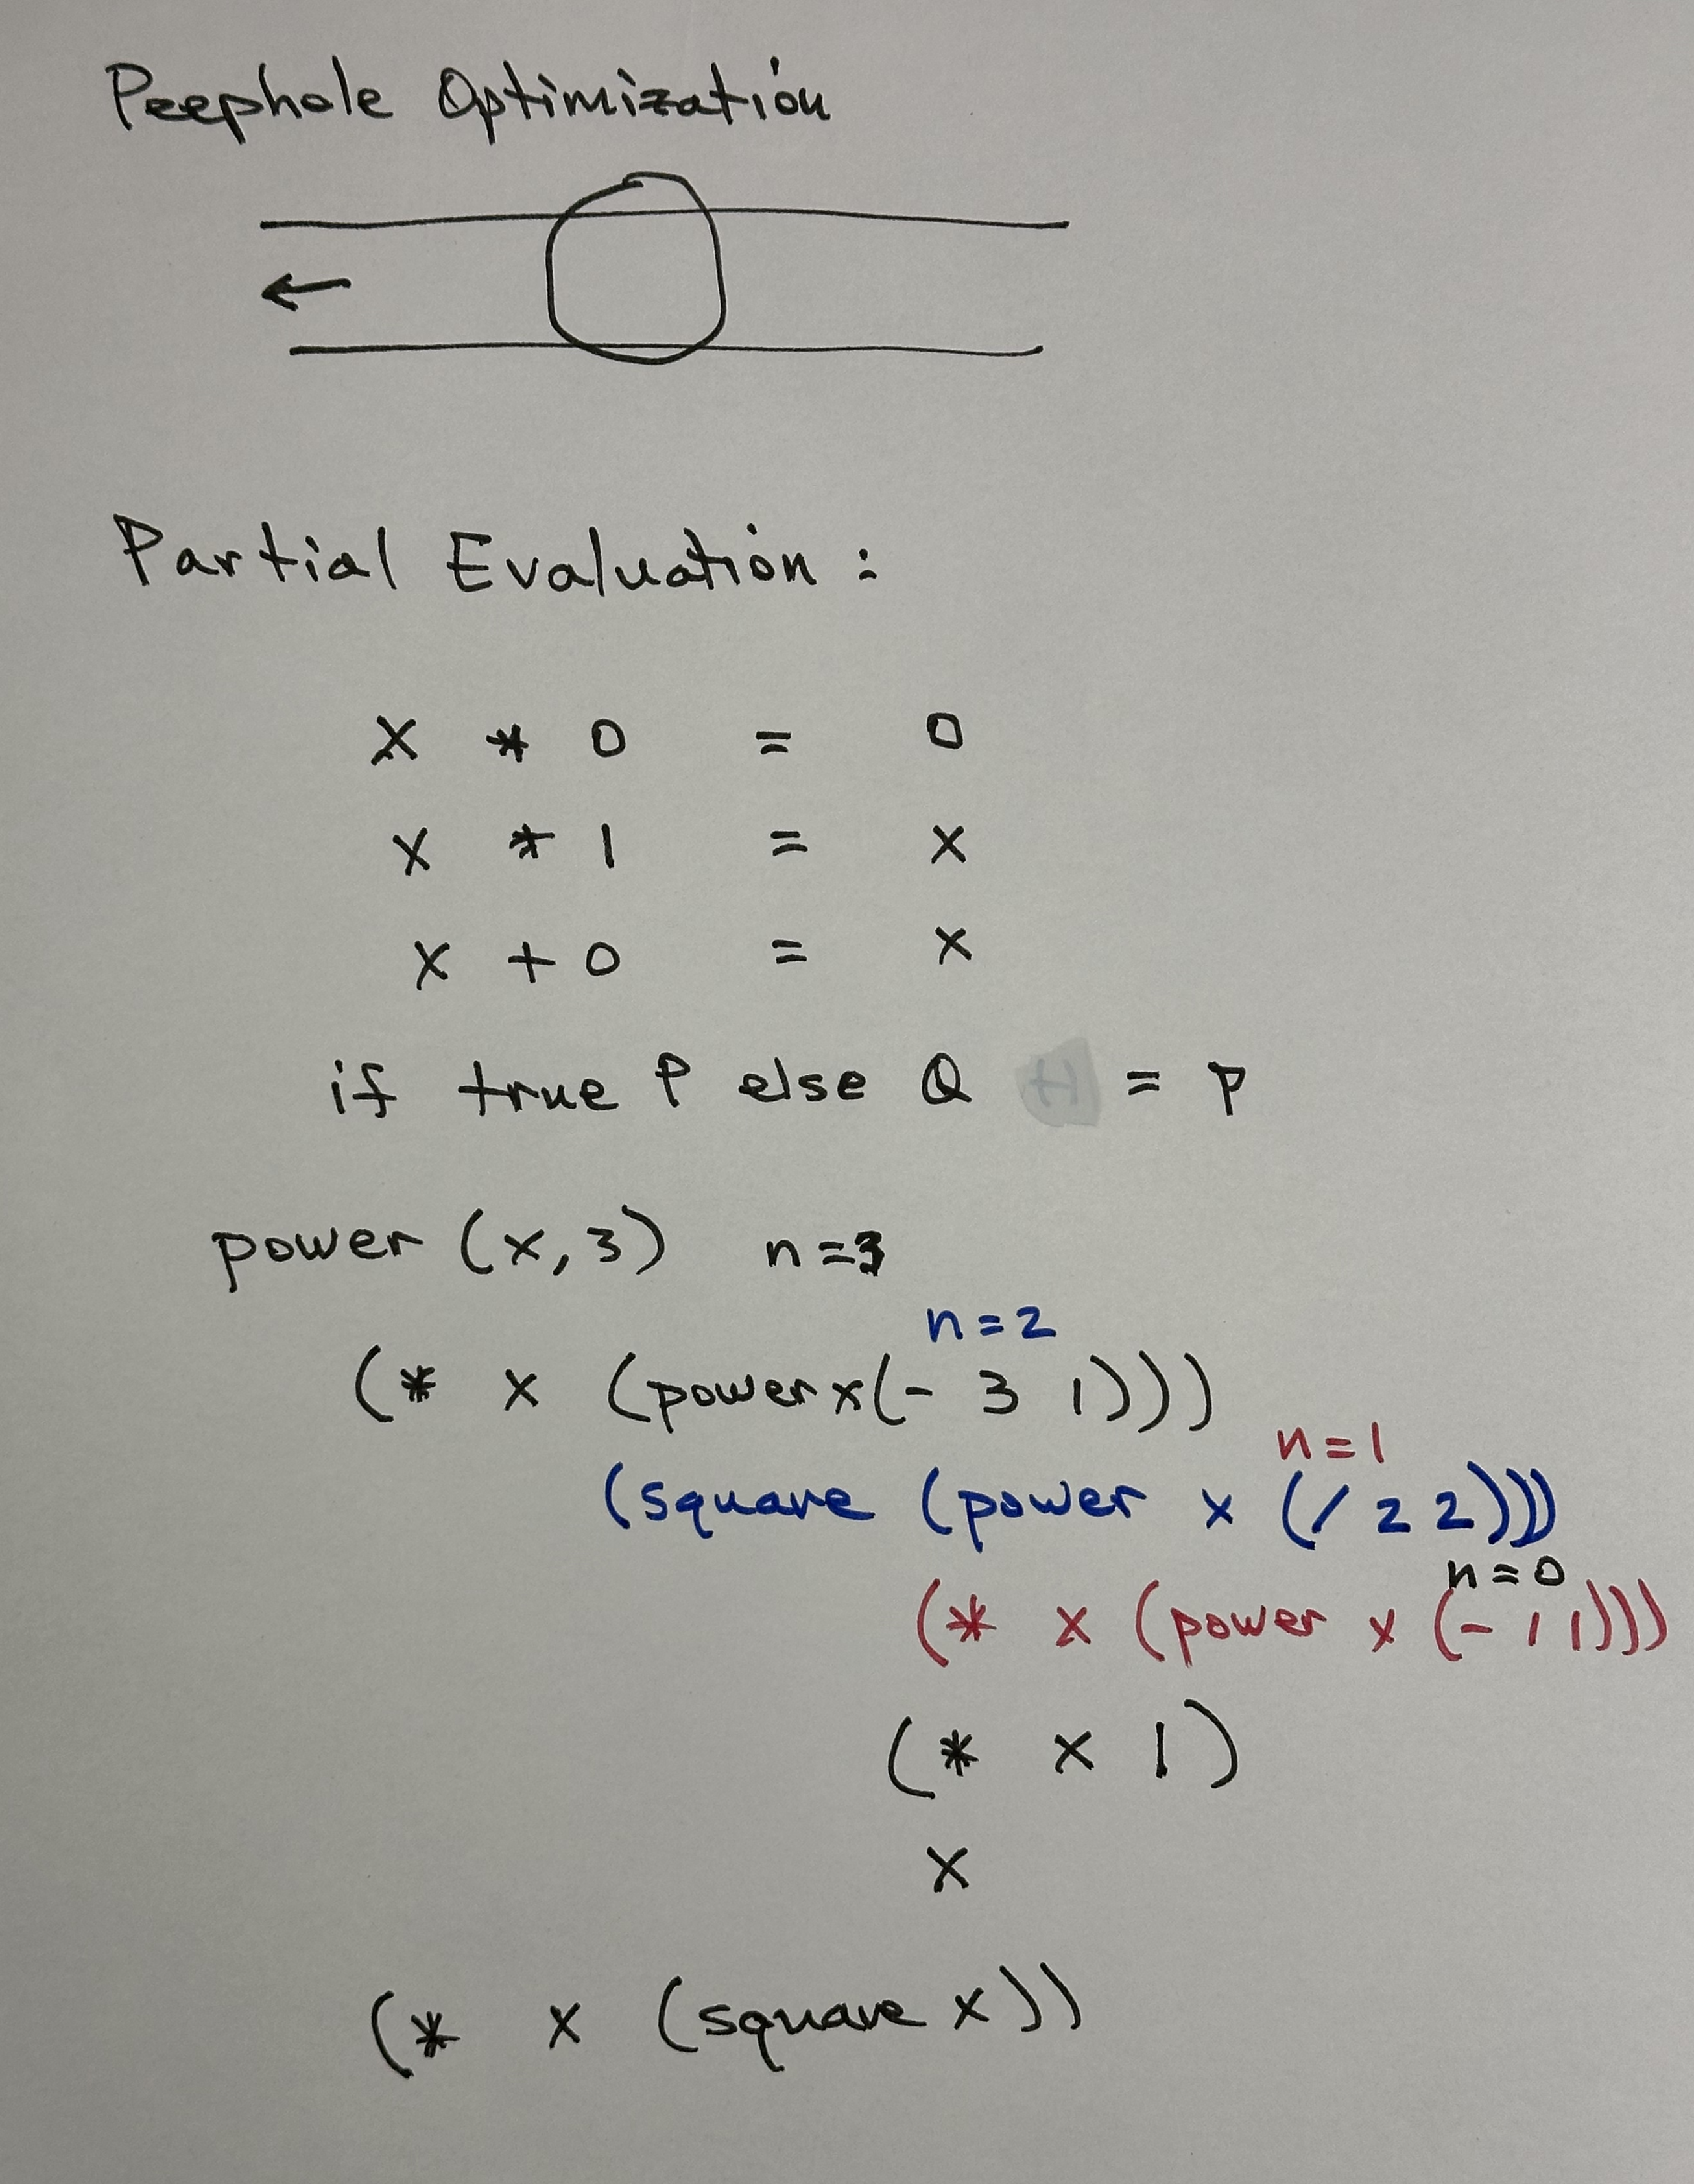 Peephole Optimization
←
Partial Evaluation :
x * 0 = 0
x * 1 = x
x + 0 = x
if true P else Q = P
power (x, 3) n=3
n=2
(* x (power x (- 3 1)))
n=1
(square (power x (/ 2 2)))
n=0
(* x (power x (- 1 1)))
(* x 1)
x
(* x (square x))